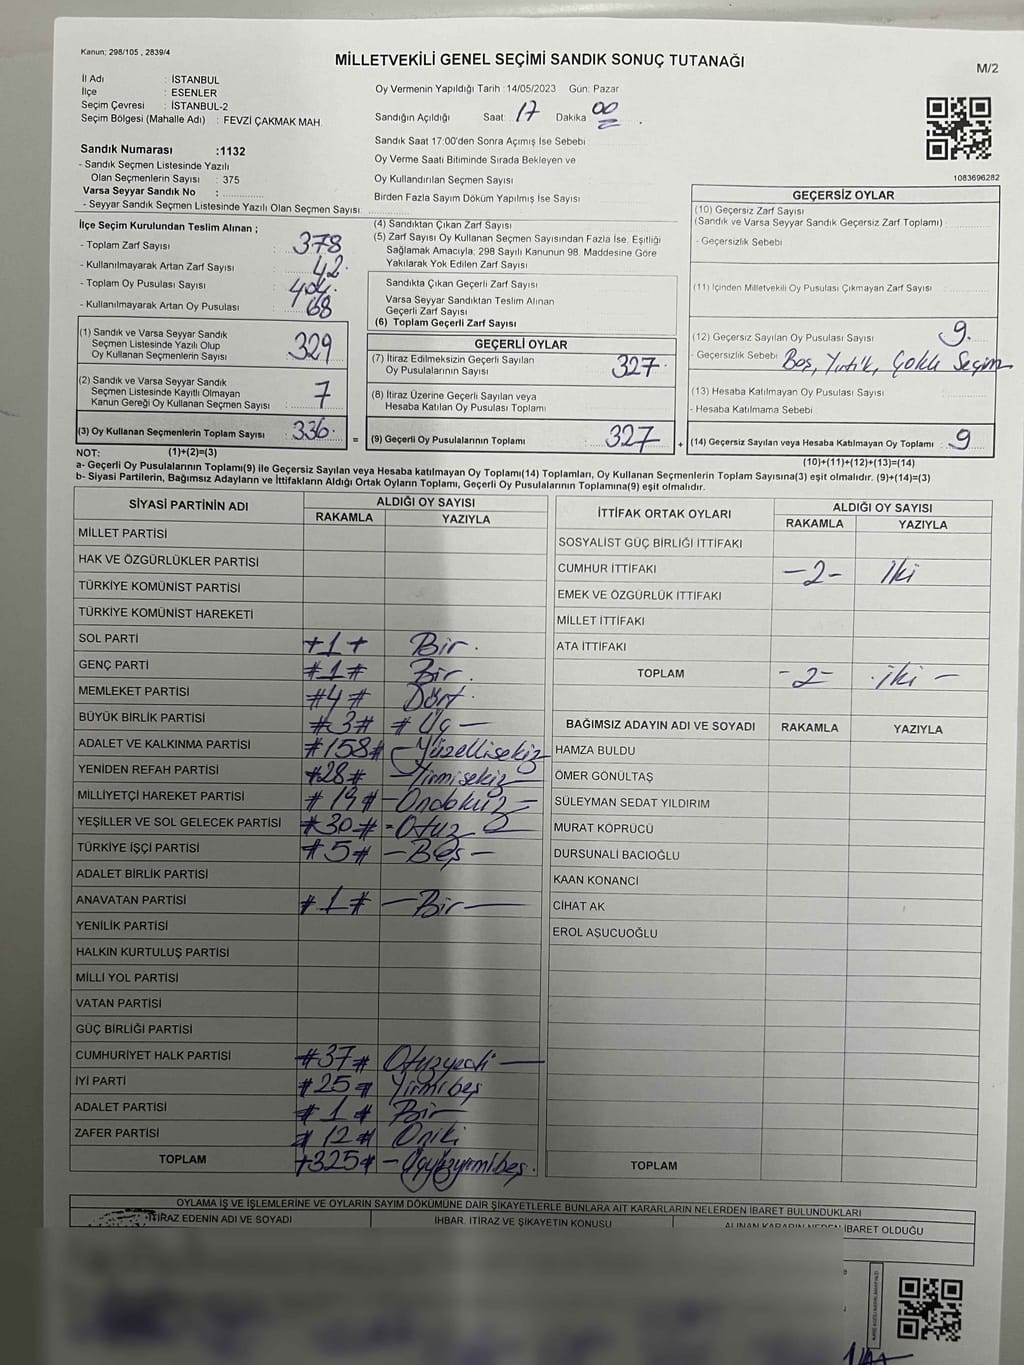 Kanun: 298/105 , 2839/4
MİLLETVEKİLİ GENEL SEÇİMİ SANDIK SONUÇ TUTANAĞI
M/2
İl Adı : İSTANBUL
İlçe : ESENLER
Seçim Çevresi : İSTANBUL-2
Seçim Bölgesi (Mahalle Adı) : FEVZİ ÇAKMAK MAH.
Oy Vermenin Yapıldığı Tarih :14/05/2023 Gün: Pazar
Sandığın Açıldığı Saat: 17 Dakika 00
Sandık Saat 17:00'den Sonra Açımış İse Sebebi
Oy Verme Saati Bitiminde Sırada Bekleyen ve
Oy Kullandırılan Seçmen Sayısı
Birden Fazla Sayım Döküm Yapılmış İse Sayısı
Sandık Numarası :1132
- Sandık Seçmen Listesinde Yazılı
Olan Seçmenlerin Sayısı : 375
Varsa Seyyar Sandık No :
- Seyyar Sandık Seçmen Listesinde Yazılı Olan Seçmen Sayısı:
1083696282
İlçe Seçim Kurulundan Teslim Alınan ;
- Toplam Zarf Sayısı : 378
- Kullanılmayarak Artan Zarf Sayısı : 42
- Toplam Oy Pusulası Sayısı :
- Kullanılmayarak Artan Oy Pusulası : 168
(1) Sandık ve Varsa Seyyar Sandık
Seçmen Listesinde Yazılı Olup
Oy Kullanan Seçmenlerin Sayısı : 329
(2) Sandık ve Varsa Seyyar Sandık
Seçmen Listesinde Kayıtlı Olmayan
Kanun Gereği Oy Kullanan Seçmen Sayısı : 7
(3) Oy Kullanan Seçmenlerin Toplam Sayısı : 336
(4) Sandıktan Çıkan Zarf Sayısı
(5) Zarf Sayısı Oy Kullanan Seçmen Sayısından Fazla İse, Eşitliği
Sağlamak Amacıyla; 298 Sayılı Kanunun 98. Maddesine Göre
Yakılarak Yok Edilen Zarf Sayısı
Sandıkta Çıkan Geçerli Zarf Sayısı
Varsa Seyyar Sandıktan Teslim Alınan
Geçerli Zarf Sayısı
(6) Toplam Geçerli Zarf Sayısı
GEÇERLİ OYLAR
(7) İtiraz Edilmeksizin Geçerli Sayılan
Oy Pusulalarının Sayısı : 327
(8) İtiraz Üzerine Geçerli Sayılan veya
Hesaba Katılan Oy Pusulası Toplamı
= (9) Geçerli Oy Pusulalarının Toplamı : 327 +
GEÇERSİZ OYLAR
(10) Geçersiz Zarf Sayısı
(Sandık ve Varsa Seyyar Sandık Geçersiz Zarf Toplamı) :
- Geçersizlik Sebebi
(11) İçinden Milletvekili Oy Pusulası Çıkmayan Zarf Sayısı
(12) Geçersiz Sayılan Oy Pusulası Sayısı : 9.
- Geçersizlik Sebebi Boş, Yırtık, Çoklu Seçim
(13) Hesaba Katılmayan Oy Pusulası Sayısı
- Hesaba Katılmama Sebebi
(14) Geçersiz Sayılan veya Hesaba Katılmayan Oy Toplamı : 9
NOT: (1)+(2)=(3)
(10)+(11)+(12)+(13)=(14)
a- Geçerli Oy Pusulalarının Toplamı(9) ile Geçersiz Sayılan veya Hesaba katılmayan Oy Toplamı(14) Toplamları, Oy Kullanan Seçmenlerin Toplam Sayısına(3) eşit olmalıdır. (9)+(14)=(3)
b- Siyasi Partilerin, Bağımsız Adayların ve İttifakların Aldığı Ortak Oyların Toplamı, Geçerli Oy Pusulalarının Toplamına(9) eşit olmalıdır.
SİYASİ PARTİNİN ADI ALDIĞI OY SAYISI
RAKAMLA YAZIYLA
MİLLET PARTİSİ
HAK VE ÖZGÜRLÜKLER PARTİSİ
TÜRKİYE KOMÜNİST PARTİSİ
TÜRKİYE KOMÜNİST HAREKETİ
SOL PARTİ +1+ Bir.
GENÇ PARTİ #1# Bir.
MEMLEKET PARTİSİ #4# Dört.
BÜYÜK BİRLİK PARTİSİ #3# # Üç —
ADALET VE KALKINMA PARTİSİ #158# - Yüzellisekiz
YENİDEN REFAH PARTİSİ #28# - Yirmisekiz
MİLLİYETÇİ HAREKET PARTİSİ #19# - Ondokuz -
YEŞİLLER VE SOL GELECEK PARTİSİ #30# - Otuz
TÜRKİYE İŞÇİ PARTİSİ #5# - Beş -
ADALET BİRLİK PARTİSİ
ANAVATAN PARTİSİ #1# — Bir —
YENİLİK PARTİSİ
HALKIN KURTULUŞ PARTİSİ
MİLLİ YOL PARTİSİ
VATAN PARTİSİ
GÜÇ BİRLİĞİ PARTİSİ
CUMHURİYET HALK PARTİSİ #37# Otuzyedi —
İYİ PARTİ #25# Yirmibeş
ADALET PARTİSİ #1# Bir
ZAFER PARTİSİ #12# Oniki
TOPLAM +325# - Üçyüzyirmibeş.
İTTİFAK ORTAK OYLARI ALDIĞI OY SAYISI
RAKAMLA YAZIYLA
SOSYALİST GÜÇ BİRLİĞİ İTTİFAKI
CUMHUR İTTİFAKI -2- İki
EMEK VE ÖZGÜRLÜK İTTİFAKI
MİLLET İTTİFAKI
ATA İTTİFAKI
TOPLAM -2- İki -
BAĞIMSIZ ADAYIN ADI VE SOYADI RAKAMLA YAZIYLA
HAMZA BULDU
ÖMER GÖNÜLTAŞ
SÜLEYMAN SEDAT YILDIRIM
MURAT KÖPRÜCÜ
DURSUNALİ BACIOĞLU
KAAN KONANCİ
CİHAT AK
EROL AŞUCUOĞLU
TOPLAM
OYLAMA İŞ VE İŞLEMLERİNE VE OYLARIN SAYIM DÖKÜMÜNE DAİR ŞİKAYETLERLE BUNLARA AİT KARARLARIN NELERDEN İBARET BULUNDUKLARI
İTİRAZ EDENİN ADI VE SOYADI İHBAR, İTİRAZ VE ŞİKAYETİN KONUSU ALINAN KARARIN NEDEN İBARET OLDUĞU